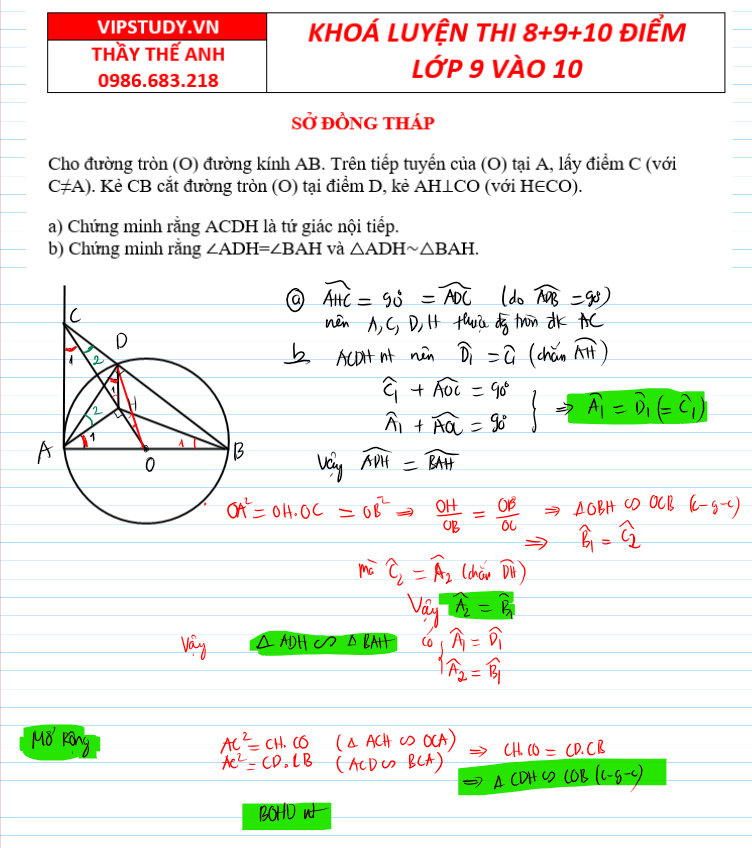 VIPSTUDY.VN
THẦY THẾ ANH
0986.683.218
KHOÁ LUYỆN THI 8+9+10 ĐIỂM
LỚP 9 VÀO 10
SỞ ĐỒNG THÁP
Cho đường tròn (O) đường kính AB. Trên tiếp tuyến của (O) tại A, lấy điểm C (với
C≠A). Kẻ CB cắt đường tròn (O) tại điểm D, kẻ AH⊥CO (với H∈CO).
a) Chứng minh rằng ACDH là tứ giác nội tiếp.
b) Chứng minh rằng ∠ADH=∠BAH và △ADH~△BAH.
C
D
1 2
1
H
2
1
1
A
O
B
a) AHC = 90° = ADC (do ADB = 90°)
nên A, C, D, H thuộc đg tròn đk AC
b ACDH nt nên D̂₁ = Ĉ₁ (chắn AH)
Ĉ₁ + AOC = 90°
Â₁ + AOC = 90°
⇒ Â₁ = D̂₁ (= Ĉ₁)
Vậy ADH = BAH
OA² = OH.OC = OB² ⇒ OH/OB = OB/OC ⇒ △OBH ∽ OCB (c-g-c)
⇒ B̂₁ = Ĉ₂
mà Ĉ₂ = Â₂ (chắn DH)
Vậy Â₂ = B̂₁
Vậy △ ADH ∽ △ BAH có Â₁ = D̂₁
Â₂ = B̂₁
Mở rộng
AC² = CH.CO (△ ACH ∽ OCA)
AC² = CD.CB (ACD ∽ BCA)
⇒ CH.CO = CD.CB
⇒ △ CDH ∽ COB (c-g-c)
BOHD nt